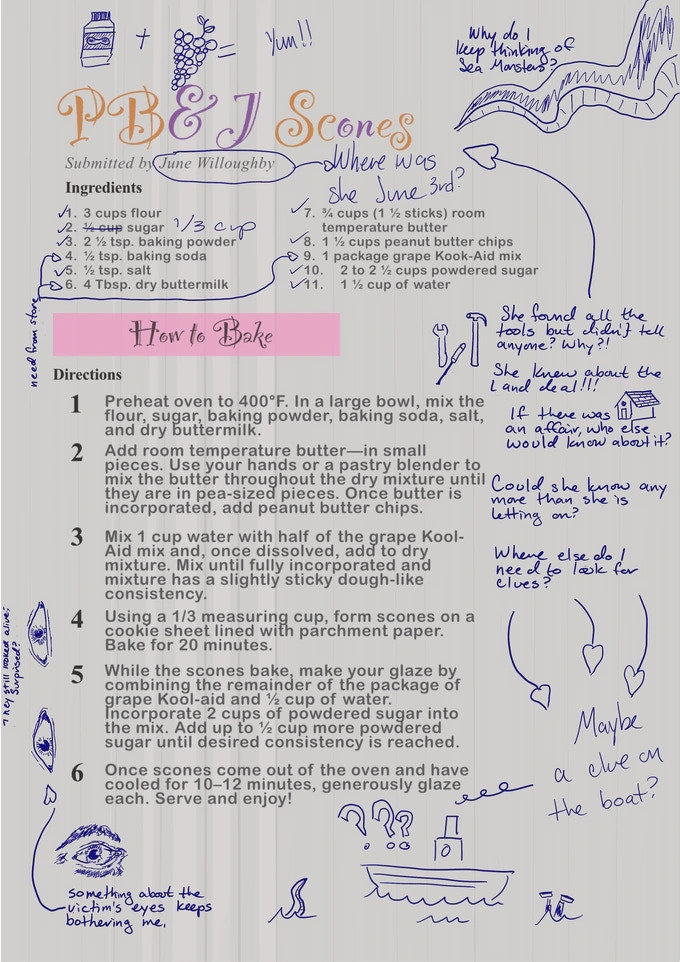 + = Yum!!
Why do I
keep thinking of
Sea Monsters?
PB&J Scones
Submitted by June Willoughby
Where was
she June 3rd?
Ingredients
1. 3 cups flour
2. ½ cup sugar 1/3 cup
3. 2 ½ tsp. baking powder
4. ½ tsp. baking soda
5. ½ tsp. salt
6. 4 Tbsp. dry buttermilk
7. ¾ cups (1 ½ sticks) room
temperature butter
8. 1 ½ cups peanut butter chips
9. 1 package grape Kook-Aid mix
10. 2 to 2 ½ cups powdered sugar
11. 1 ½ cup of water
need from store
How to Bake
Directions
1 Preheat oven to 400°F. In a large bowl, mix the
flour, sugar, baking powder, baking soda, salt,
and dry buttermilk.
2 Add room temperature butter—in small
pieces. Use your hands or a pastry blender to
mix the butter throughout the dry mixture until
they are in pea-sized pieces. Once butter is
incorporated, add peanut butter chips.
3 Mix 1 cup water with half of the grape Kool-
Aid mix and, once dissolved, add to dry
mixture. Mix until fully incorporated and
mixture has a slightly sticky dough-like
consistency.
4 Using a 1/3 measuring cup, form scones on a
cookie sheet lined with parchment paper.
Bake for 20 minutes.
5 While the scones bake, make your glaze by
combining the remainder of the package of
grape Kool-aid and ½ cup of water.
Incorporate 2 cups of powdered sugar into
the mix. Add up to ½ cup more powdered
sugar until desired consistency is reached.
6 Once scones come out of the oven and have
cooled for 10–12 minutes, generously glaze
each. Serve and enjoy!
She found all the
tools but didn't tell
anyone? Why?!
She knew about the
Land deal!!!
If there was
an affair, who else
would know about it?
Could she know any
more than she is
letting on?
Where else do I
need to look for
clues?
Maybe
a clue on
the boat?
They still looked alive.
Surprised?
???
something about the
victim's eyes keeps
bothering me.